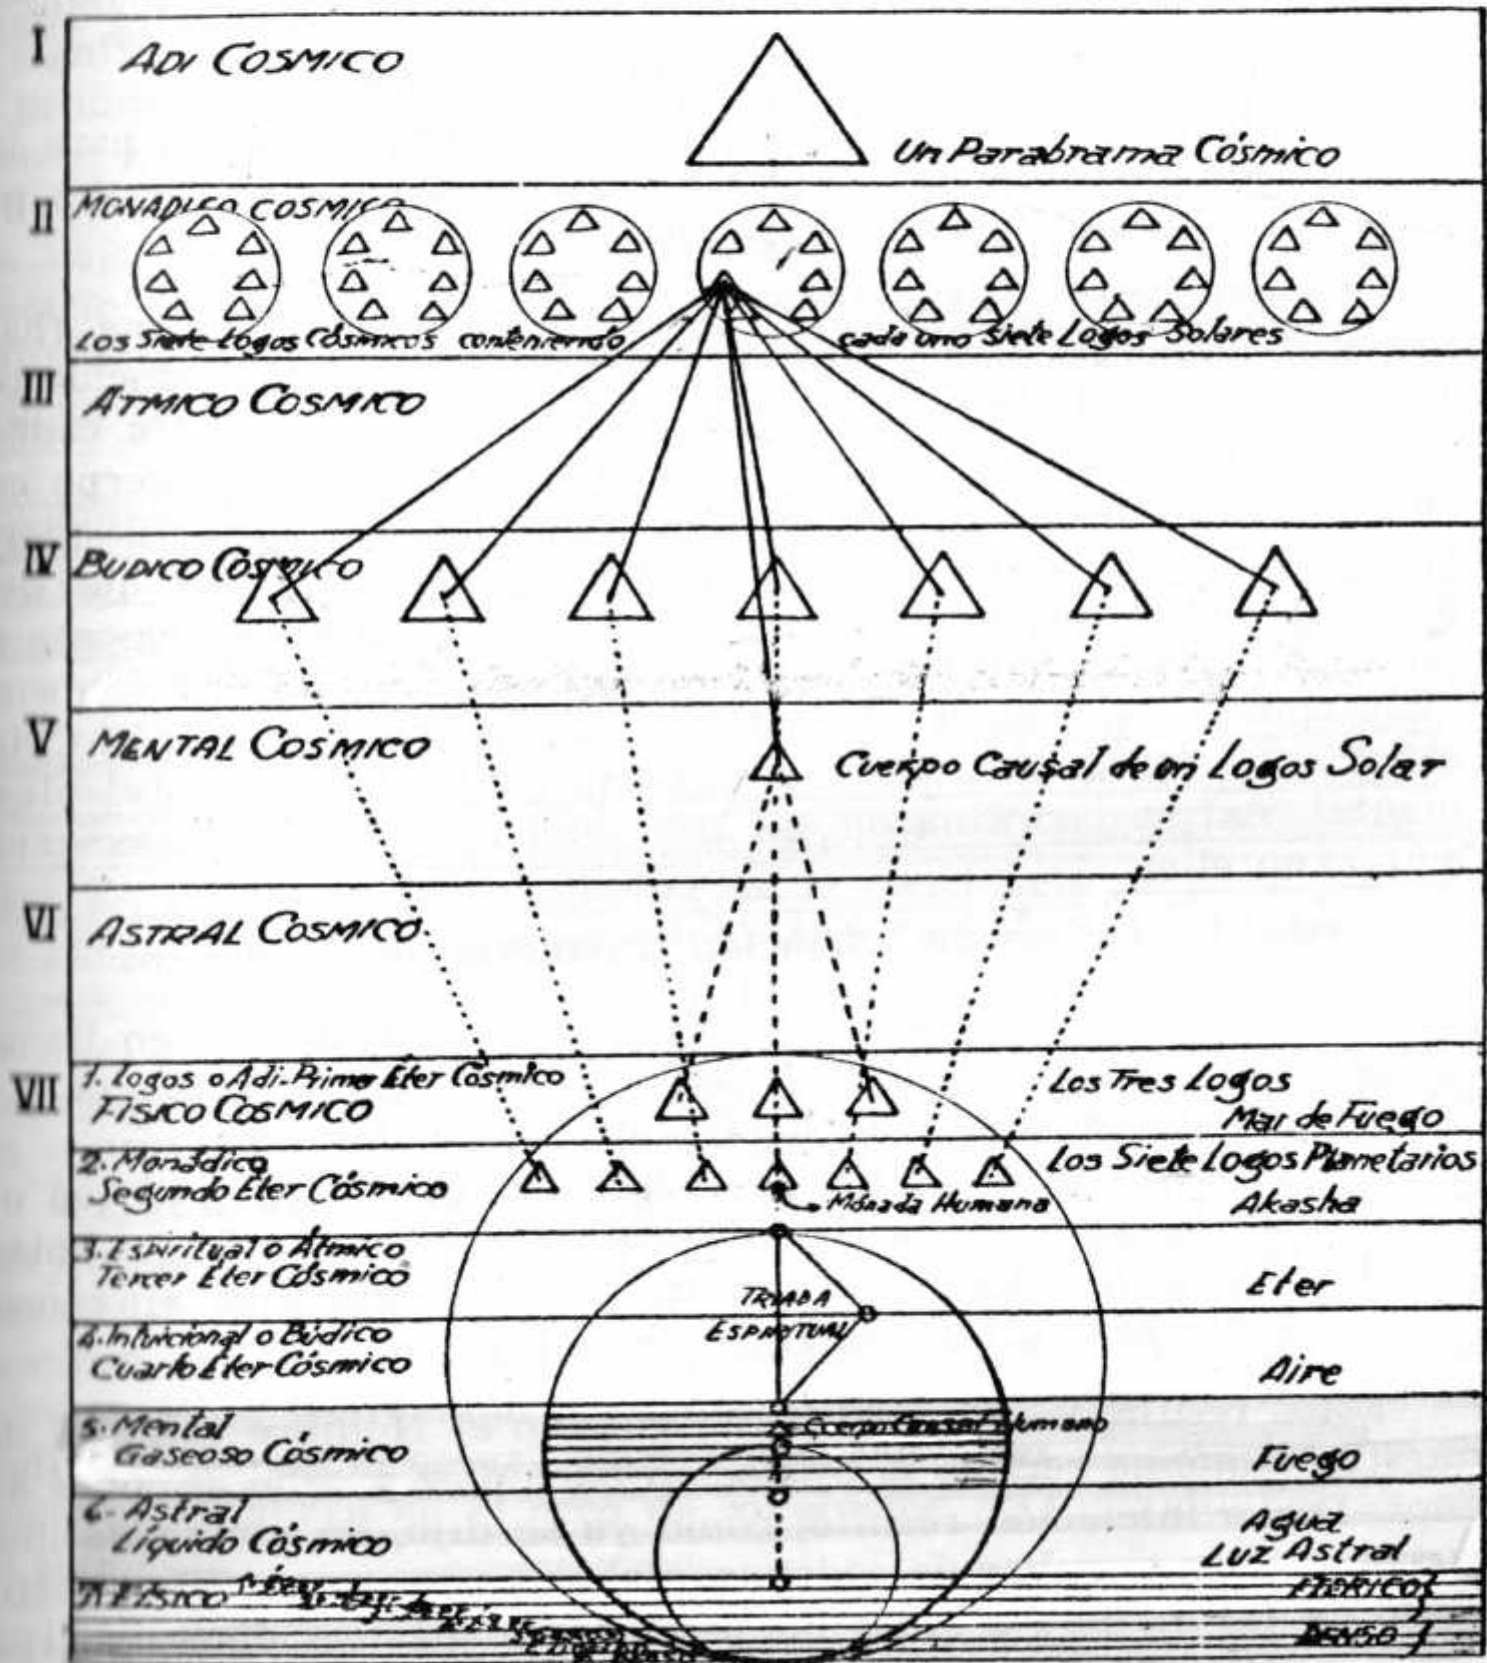 I
ADI COSMICO
Un Parabrama Cósmico
II
MONADICO COSMICO
Los Siete Logos Cósmicos conteniendo cada uno Siete Logos Solares
III
ÁTMICO COSMICO
IV
BUDICO CÓSMICO
V
MENTAL COSMICO
Cuerpo Causal de un Logos Solar
VI
ASTRAL COSMICO
VII
1. Logos o Adi-Primer Éter Cósmico
FÍSICO COSMICO
Los Tres Logos
Mar de Fuego
2. Monádico
Segundo Éter Cósmico
Los Siete Logos Planetarios
Akasha
Mónada Humana
3. Espiritual o Átmico
Tercer Éter Cósmico
Eter
TRIADA
ESPIRITUAL
4. Intuicional o Búdico
Cuarto Éter Cósmico
Aire
5. Mental
Gaseoso Cósmico
Cuerpo Causal Humano
Fuego
6. Astral
Líquido Cósmico
Agua
Luz Astral
7. FISICO
ETERICO
DENSO